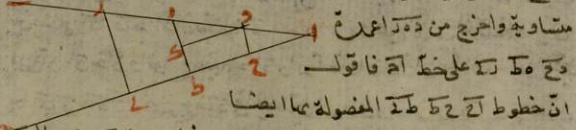 متساوية واخرج من د ه ر اعمدة
دح هط رى على خط اه فاقول
ان خطوط اح حط طى المفصولة بها ايضا
ا
ح
ط